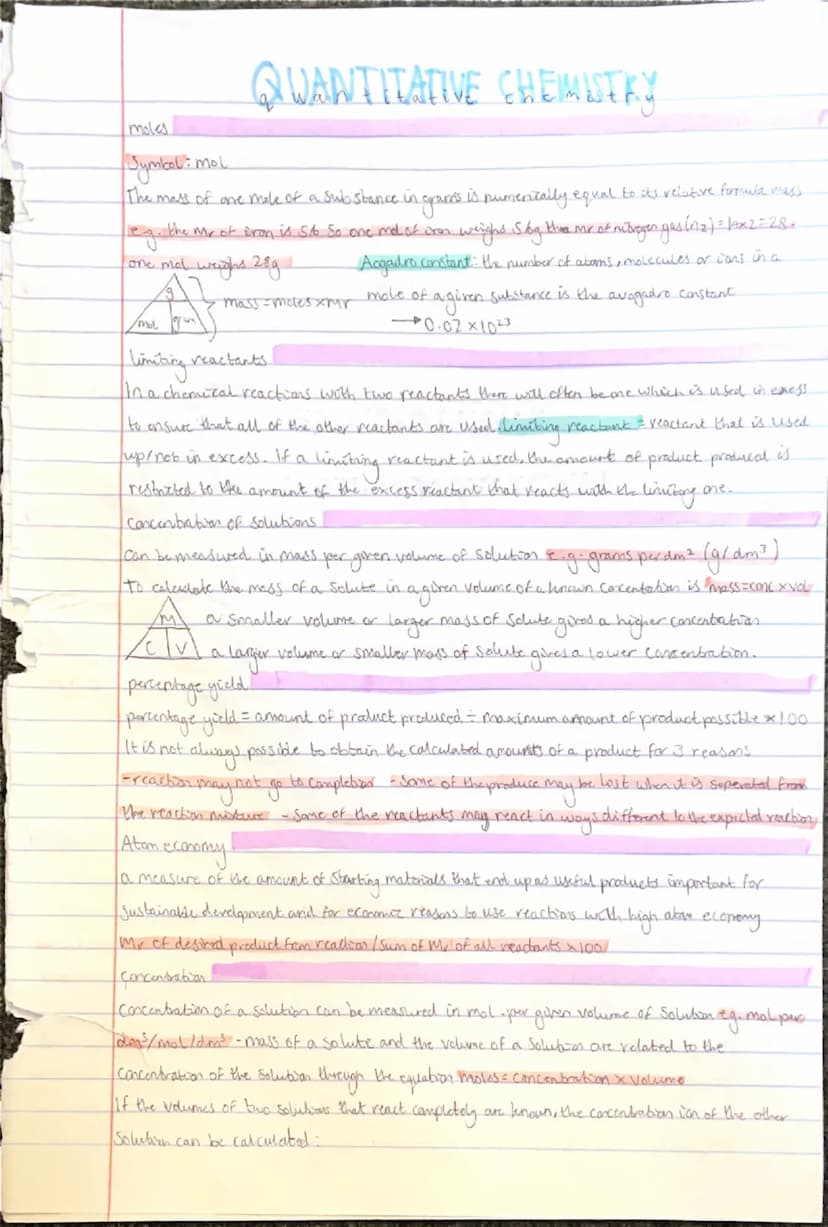 QUANTITATIVE CHEMISTRY
quantitative chemistry
moles
Symbol: mol
The mass of one mole of a substance in grams is numerically equal to its relative formula mass
e.g. the Mr of iron is 56 So one mol of iron weighs 56g the mr of nitrogen gas (n2) = 14x2 = 28.
one mol weighs 28g Aogadro constant: the number of atoms, molecules or ions in a
g mass = moles x mr mole of a given substance is the avogadro constant
mol → 0.02 x 10²³
limiting reactants
In a chemical reactions with two reactants there will often be one which is used in excess
to ensure that all of the other reactants are used. limiting reactant = reactant that is used
up/not in excess. If a limiting reactant is used, the amount of product produced is
restricted to the amount of the excess reactant that reacts with the limiting one.
concentration of solutions
can be measured in mass per given volume of solution e.g. grams per dm² (g/dm³)
To calculate the mass of a solute in a given volume of a known concentration is mass = conc x vol
M a smaller volume or larger mass of solute gives a higher concentration
C V a larger volume or smaller mass of solute gives a lower concentration.
percentage yield
percentage yield = amount of product produced ÷ maximum amount of product possible x 100
It is not always possible to obtain the calculated amounts of a product for 3 reasons
-reaction may not go to completion - Some of the produce may be lost when it is seperated from
the reaction mixture - Some of the reactants may react in ways different to the expected reaction
Atom economy
a measure of the amount of starting materials that end up as useful products important for
sustainable development and for economic reasons to use reactions with high atom economy
Mr of desired product from reaction / sum of Mr of all reactants x 100
concentration
Concentration of a solution can be measured in mol. per given volume of solution eg. mol per
dm³/mol/dm³ - mass of a solute and the volume of a solution are related to the
concentration of the solution through the equation moles = concentration x volume
If the volumes of two solutions that react completely are known, the concentration ion of the other
solution can be calculated: